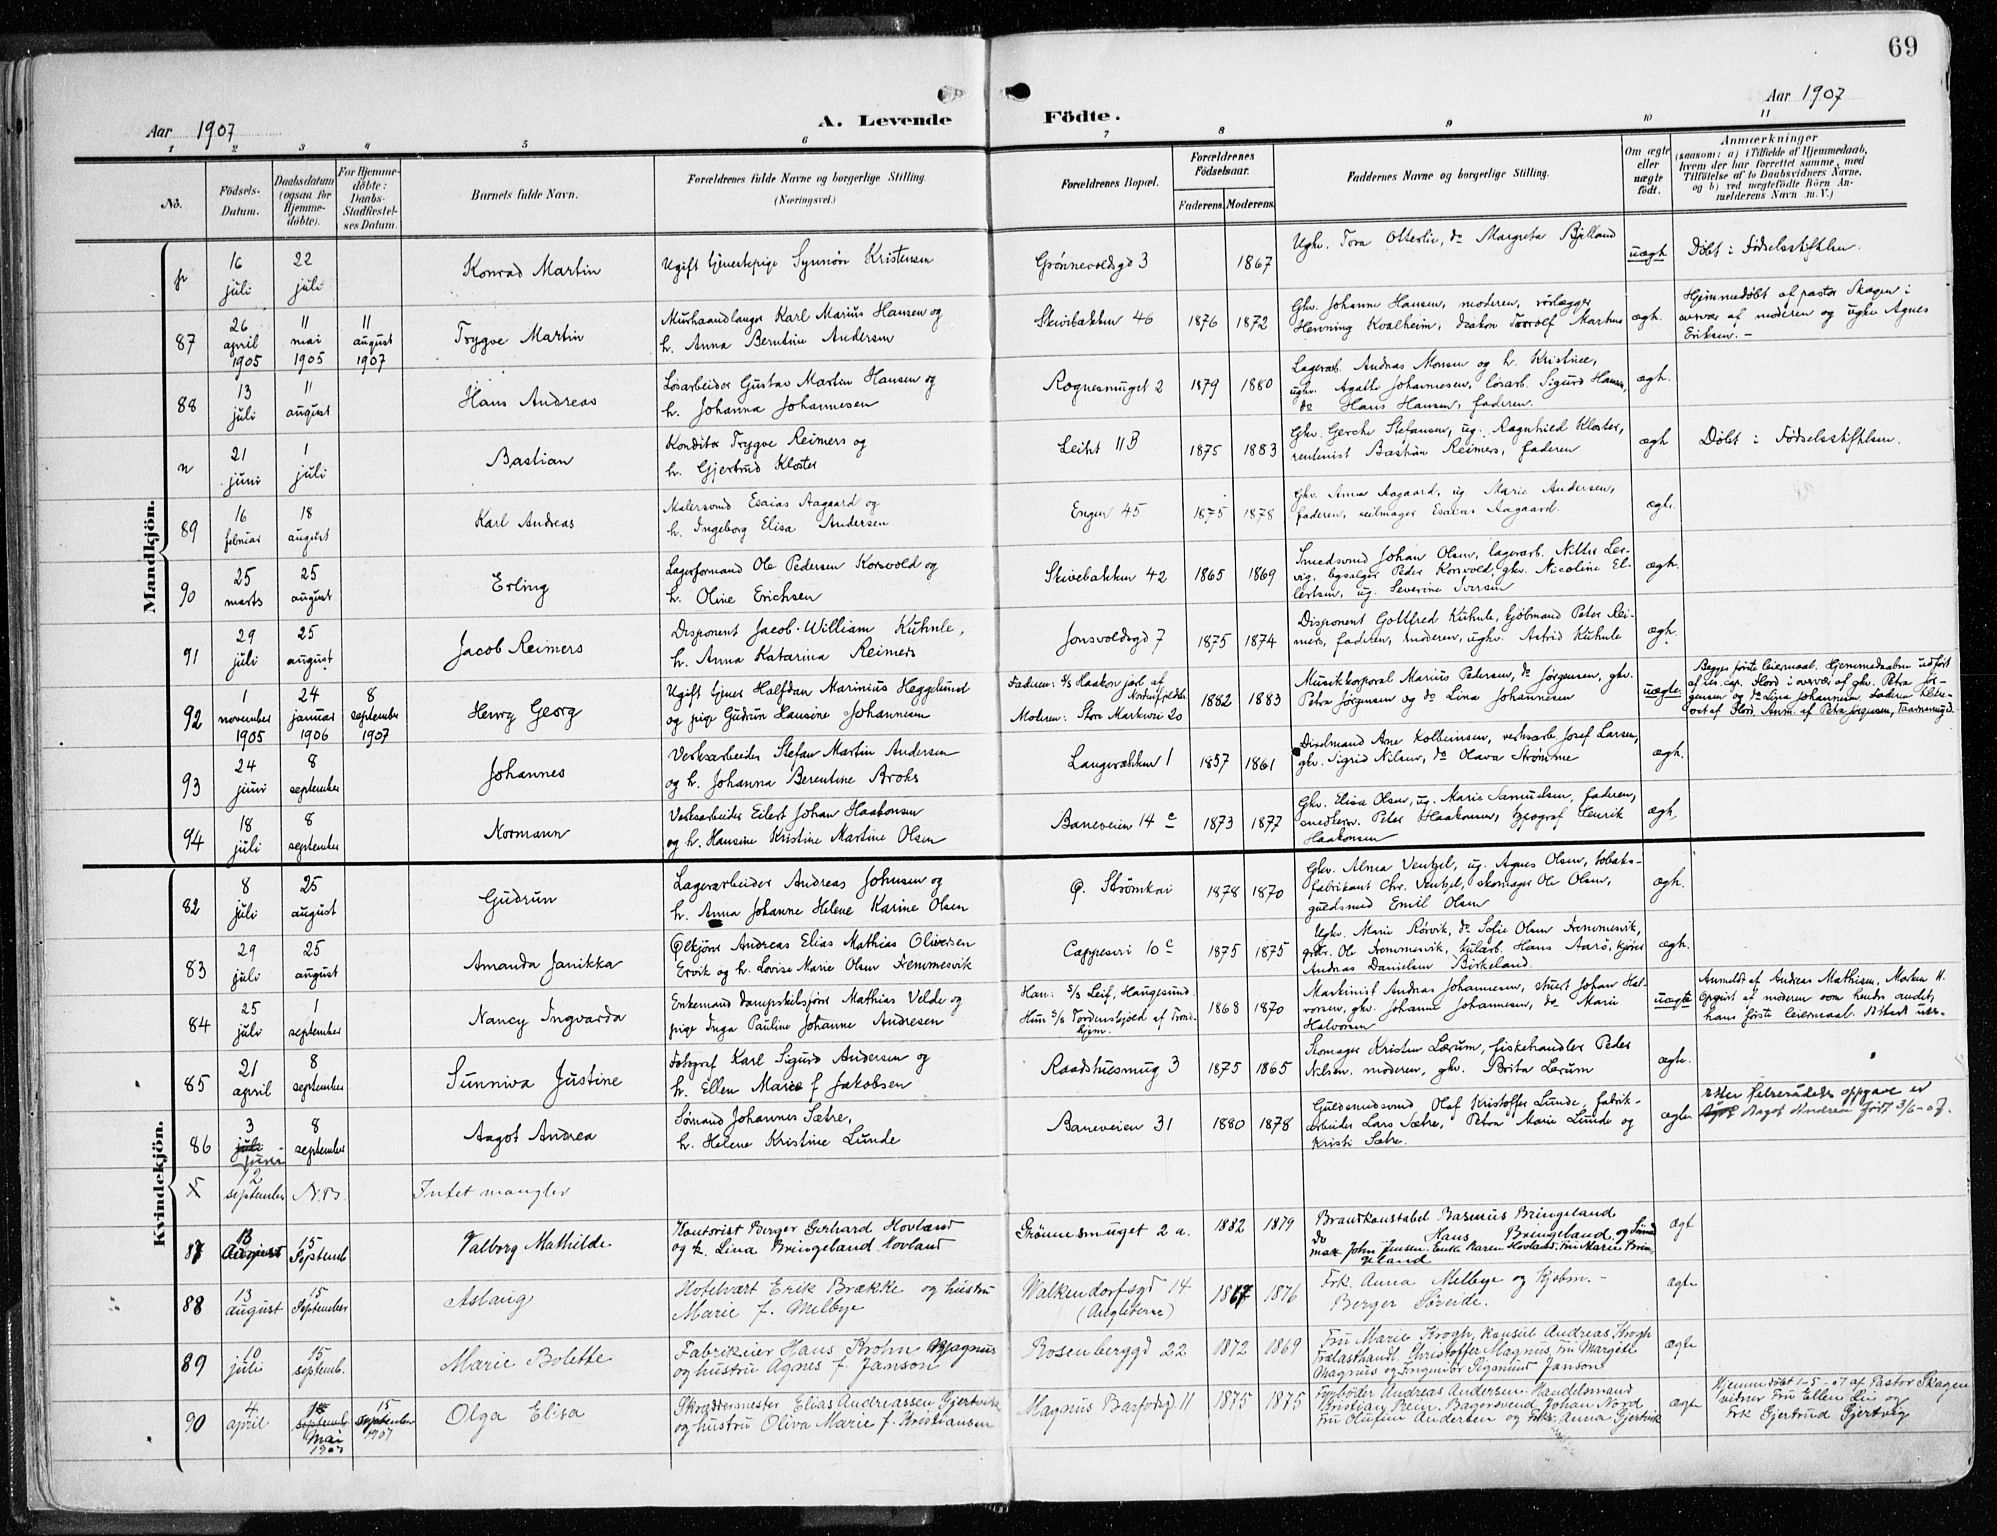 69
Aar 1907
A. Levende Födte.
Aar 1907
1 2 3 4 5 6 7 8 9 10 11
No.
Födsels-Datum.
Daabsdatum (ogsaa for Hjemme-döbte).
For Hjemme-döbte: Daabs-Stadfæstel-ses Datum.
Barnets fulde Navn.
Forældrenes fulde Navne og borgerlige Stilling.
(Næringsvei.)
Forældrenes Bopæl.
Forældrenes Födselsaar.
Faderens. Moderens.
Faddernes Navne og borgerlige Stilling.
Om ægte eller uægte födt.
Anmærkninger
(saasom: a) i Tilfælde af Hjemmedaab,
hvem der har forrettet samme, med
Tilföielse af to Daabsvidners Navne,
og b) ved uægtefödte Börn An-
melderens Navn m. V.)
Mandkjön.
16 juli
22 juli
Konrad Martin
Ugift tjenestepige Synnøve Kristensen
Grønnevoldsgd 3
1867
Ugkv. Tora Otterlei, do Margreta Bjelland
uægh
Døbt i Fødselsstiftelsen.
87
26 april 1905
11 mai 1905
11 august 1907
Trygve Martin
Murhaandlanger Karl Marius Hansen og
h. Anna Berntine Andersen
Skivebakken 46
1876 1872
Gkv. Johanne Hansen, moderen, rørlægger
Henning Kvalheim, diakon Martens
ægh.
Hjemmedøbt af pastor Skagen i
overvær af moderen og ugkv Agnes
Eriksen. –
88
13 juli
11 august
Hans Andreas
Løsarbeider Gustav Martin Hansen og
h. Johanna Johannesen
Rognesmuget 2
1879 1880
Lagerarb. Andreas Monsen og h. Kristine,
ugkv. Agathe Johannesen, løsarb. Sigurd Hansen,
do Hans Hansen, faderen.
ægh.
n
21 juni
1 juli
Bastian
Konditor Trygve Reimers og
h. Gjertrud Kloster
11 B
1875 1883
Gkv. Gerche Stefansen, ug. Ragnhild Kloster,
rentenist Bastian Reimers, faderen
ægh
Døbt i Fødselsstiftelsen.
89
16 februar
18 august
Karl Andreas
Malersvend Esaias Aagaard og
h. Ingeborg Elisa Andersen
Engen 45
1875 1878
Gkv. Anna Aagaard, ug. Marie Andersen,
faderen, seilmager Esaias Aagaard.
ægh.
90
25 marts
25 august
Erling
Lagerformand Ole Pedersen Korsvold og
h. Oline Erichsen
Skivebakken 42
1865 1869
Smedsvend Johan Olsen, lagerarb. Nils Ler-
vig, bysælger Peder Korsvold, gkv. Nicoline El-
lertsen, ug. Severine Iversen
ægh.
91
29 juli
25 august
Jacob Reimers
Disponent Jacob William Kuhnle,
h. Anna Katarina Reimers
Jonsvoldsgd 7
1875 1874
Disponent Gottfred Kuhnle, Gjøbmand Peter Rei-
mers, faderen, moderen, ugkv. Astrid Kuhnle
ægh.
92
1 november 1905
24 januar 1906
8 september 1907
Henry Georg
Ugift tjener Halfdan Marinius Heggelund
og pige Gudrun Hansine Johannesen
Faderen: S/S Haakon jarl af Nordenfjeldske
Moderen: Store Markevei 20
1882 1883
Musikkorporal Marius Petersen, do Jørgensen, gkv.
Petra Jørgensen og do Lina Johannesen
uægte.
Begges første leiermaal. Hjemmedaaben udført
af res. cap. Hord i overvær af gkv. Petra Jør-
gensen og do Lina Johannesen.
Hord. Anm. af Petra Jørgensen, Taarnesmug 3.
93
24 juni
8 september
Johannes
Verksarbeider Stefan Martin Andersen
og h. Johanna Berentine Broks
Langerækken 1
1857 1861
Ane Kolbeinsen, verksarb. Josef Larsen,
gkv. Sigrid Nilsen, do Olava Strømme
ægh.
94
18 juli
8 september
Normann
Verksarbeider Eilert Johan Haakonsen
og h. Hansine Kristine Martine Olsen
Baneveien 14 c
1873 1877
Gkv. Elisa Olsen, ug. Marie Samuelsen, faderen,
snedkerm. Peter Haakonsen, typograf Henrik
Haakonsen
ægh.
Kvindekjön.
82
8 juli
25 august
Gudrun
Lagerarbeider Andreas Johnsen og
h. Anna Johanne Helene Karine Olsen
Ø. Strømkai
1878 1870
Gkv. Alma Ventzel, ug. Agnes Olsen, tobaks-
fabrikant Chr. Ventzel, skomager Ole Olsen,
guldsmed Emil Olsen
ægh.
83
29 juli
25 august
Amanda Janikka
Ølkjører Andreas Elias Mathias Oliversen
Ervik og h. Lovise Marie Olsen Fremmesvik
Cappesvei 10 c
1875 1875
Ugkv. Marie Rørvik, do Sofie Olsen Fremmesvik,
Ole Fremmesvik, kularb. Hans Aarø, kjører
Andreas Danielsen Birkeland.
ægh.
84
25 juli
1 september
Nancy Ingvarda
Enkemand dampskibsfører Mathias Velde og
pige Inga Pauline Johanne Andresen
Han: S/S Leif, Haugesund.
Hun S/S Tordenskjold af Trond-
hjem.
1868 1870
Maskinist Andreas Johannesen, stuert Johan Hal-
vorsen, gkv. Johanne Johannesen, do Marie
Halvorsen
uægte
Anmeldt af Andreas Mathisen, Marken 11.
Opgivet af moderen som hendes andet,
hans første leiermaal.
85
21 april
8 september
Sunniva Justine
Fotograf Karl Sigurd Andersen og
h. Ellen Marie f Jakobsen
Raadhusmug 3
1875 1865
Skomager Kristen Lærum, fiskehandler Peder
Nilsen, moderen, gkv. Brita Lerum
ægte.
86
3 juli juni
8 september
Aagot Andrea
Sømand Johannes Sætre,
h. Helene Kristine Lunde
Baneveien 31
1880 1878
Guldsmedsvend Olaf Kristoffer Lunde, fabrik-
arbeider Lars Sætre, Petra Marie Lunde og
Kristi Sætre.
ægte
Efter opgave er
Aagot Andrea født 3/6-07.
12 september N.B.
Intet mangler
87
13 August
15 Septemb.
Valborg Mathilde.
Kontorist Berger Gerhard Hovland
og h. Lina Bringeland Hovland
Grønnesmuget 2 a.
1882 1879
Brandkonstabel Rasmus Bringeland
do Hans Bringeland, og
John Jensen. Enke Karen Hovland. Fru Marie Brin-
geland
ægt
88
13 august
15 September
Aslaug
Hotelvært Erik Brække og hustru
Marie f. Melbye
Walkendorfsgd 14
(Angleterre)
1867 1876
Frk. Anna Melbye og Kjøbm. –
Berger Søreide.
ægte
89
10 juli
15 septemb.
Marie Bolette
Fabrikeier Hans Krohn Magnus
og hustru Agnes f. Janson
Rosenberggd 22
1872 1869
Fru Marie Krogh, Konsul Andreas Krogh
Trælasthandl. Christoffer Magnus, Fru Margete
Magnus og Ingeniør Sigmund Janson
ægte
90
4 april
15 septemb. Mai 1907
15 september 1907
Olga Elisa
Skræddermester Elias Andreassen Gjertvik
og hustru Oliva Marie f. Kristiansen
Magnus Barfodsgd 11
1875 1875
Fyrbøder Andreas Andersen. Handelsmand
Kristian Bein. Bagersvend Johan Nord
Fru Olufine Andersen og Frk. Anna Gjertvik
ægte
Hjemmedøbt 1-5-07 af Pastor Skagen
vidner Fru Ellen Lie og
Frk Gjertrud Gjertvig